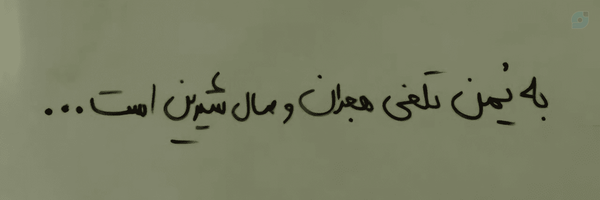 به یُمن تلخی هجران وصال شیرین است...